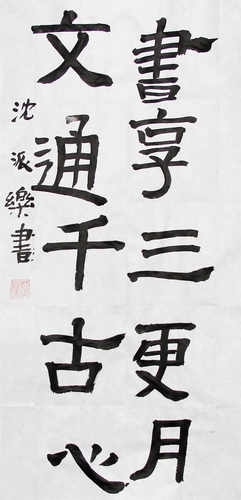 書享三更月
文通千古心
沈派樂書